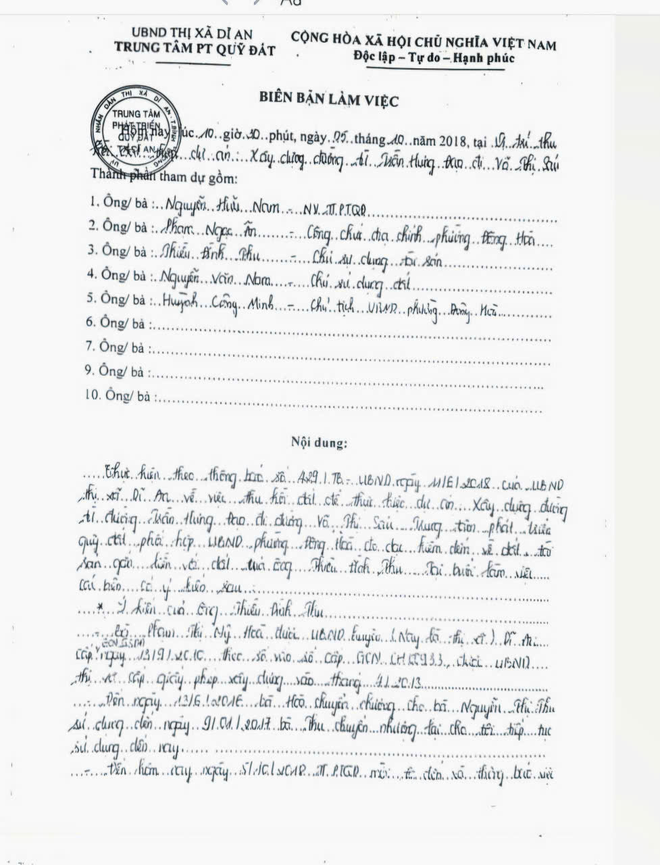 UBND THỊ XÃ DĨ AN
TRUNG TÂM PT QUỸ ĐẤT
CỘNG HÒA XÃ HỘI CHỦ NGHĨA VIỆT NAM
Độc lập – Tự do – Hạnh phúc
BIÊN BẢN LÀM VIỆC
TRUNG TÂM
PHÁT TRIỂN
QUỸ ĐẤT
Hôm nay lúc 10 giờ 30 phút, ngày 05 tháng 10 năm 2018, tại vị trí thu
dự án: Xây dựng đường từ Trần Hưng Đạo đi Võ Thị Sáu
Thành phần tham dự gồm:
1. Ông/ bà : Nguyễn Hữu Nam - NV TT.PTQĐ
2. Ông/ bà : Phạm Ngọc Ân - Công chức địa chính phường Đông Hoà
3. Ông/ bà : Thiều Đình Thu - Chủ sử dụng tài sản
4. Ông/ bà : Nguyễn Văn Nam - Chủ sử dụng đất
5. Ông/ bà : Huỳnh Công Minh - Chủ tịch UBND phường Đông Hoà
6. Ông/ bà :
7. Ông/ bà :
9. Ông/ bà :
10. Ông/ bà :
Nội dung:
Thực hiện theo thông báo số 429/TB-UBND ngày 11/6/2018 của UBND
thị xã Dĩ An về việc thu hồi đất để thực hiện dự án Xây dựng đường
từ đường Trần Hưng Đạo đi đường Võ Thị Sáu Trung tâm phát triển
quỹ đất phối hợp UBND phường Đông Hoà đo đạc kiểm đếm về đất, tài
sản gắn liền với đất của ông Thiều Đình Thu. Tại buổi làm việc
các bên có ý kiến sau
* Ý kiến của ông Thiều Đình Thu
- Bà Phạm Thị Mỹ Hoà được UBND huyện (Nay là thị xã) Dĩ An
cấp ngày 13/9/2010 theo số vào sổ cấp GCN được UBND
thị xã cấp giấy phép xây dựng vào tháng 2013
- Đến ngày 13/6/2016 bà Hoà chuyển nhượng cho bà Nguyễn Thị Thu
sử dụng đến ngày 2017 bà Thu chuyển nhượng lại cho tôi tiếp tục
sử dụng đến nay
- Đến hôm nay ngày 5/10/2018 TT.PTQĐ mời tôi đến thông báo việc